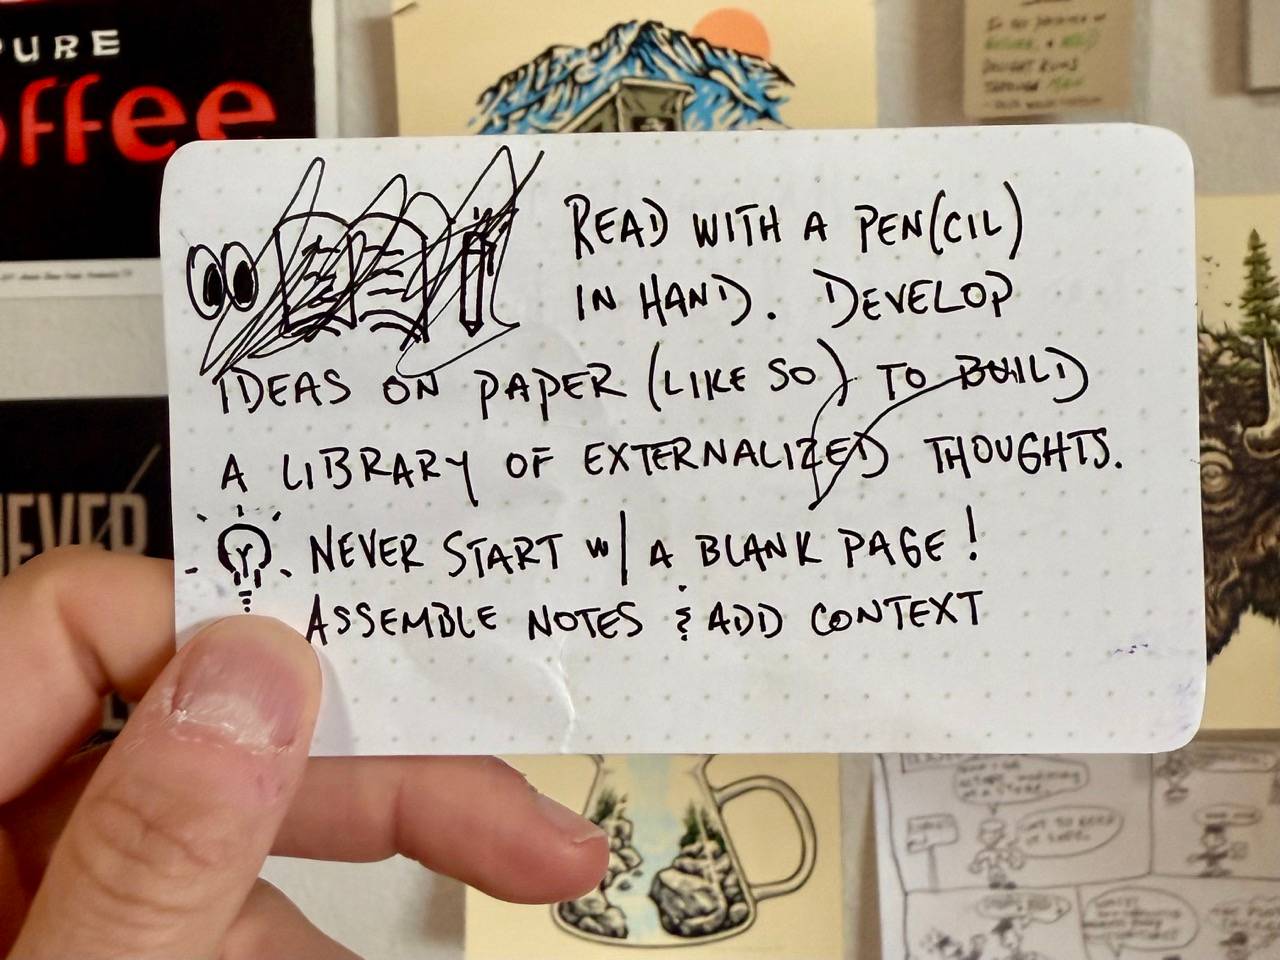 PURE
offee
READ WITH A PEN(CIL)
IN HAND. DEVELOP
IDEAS ON PAPER (LIKE SO) TO BUILD
A LIBRARY OF EXTERNALIZED THOUGHTS.
NEVER START W/ A BLANK PAGE!
ASSEMBLE NOTES & ADD CONTEXT
NEVER